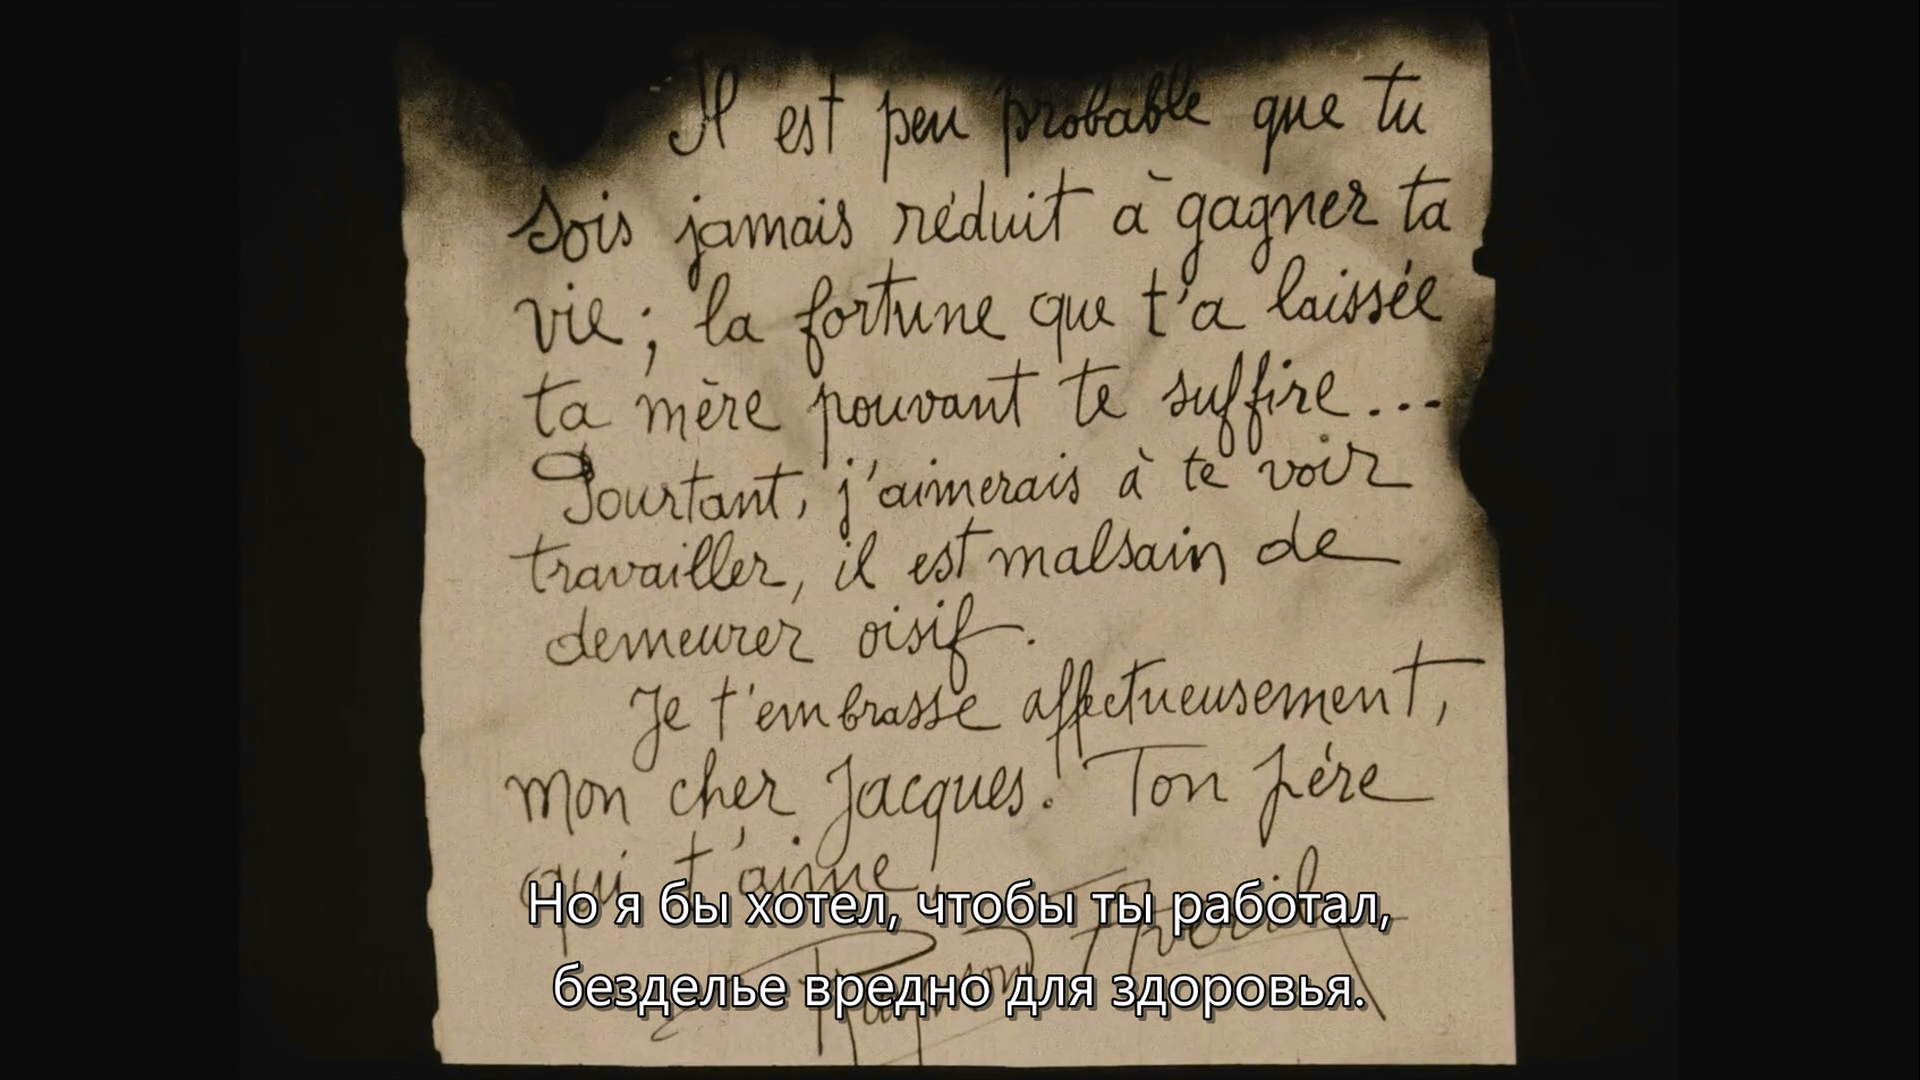 Il est peu probable que tu
sois jamais réduit à gagner ta
vie ; la fortune que t'a laissée
ta mère pouvant te suffire...
Pourtant, j'aimerais à te voir
travailler, il est malsain de
demeurer oisif.
Je t'embrasse affectueusement,
mon cher Jacques. Ton père
qui t'aime,
Но я бы хотел, чтобы ты работал,
безделье вредно для здоровья.